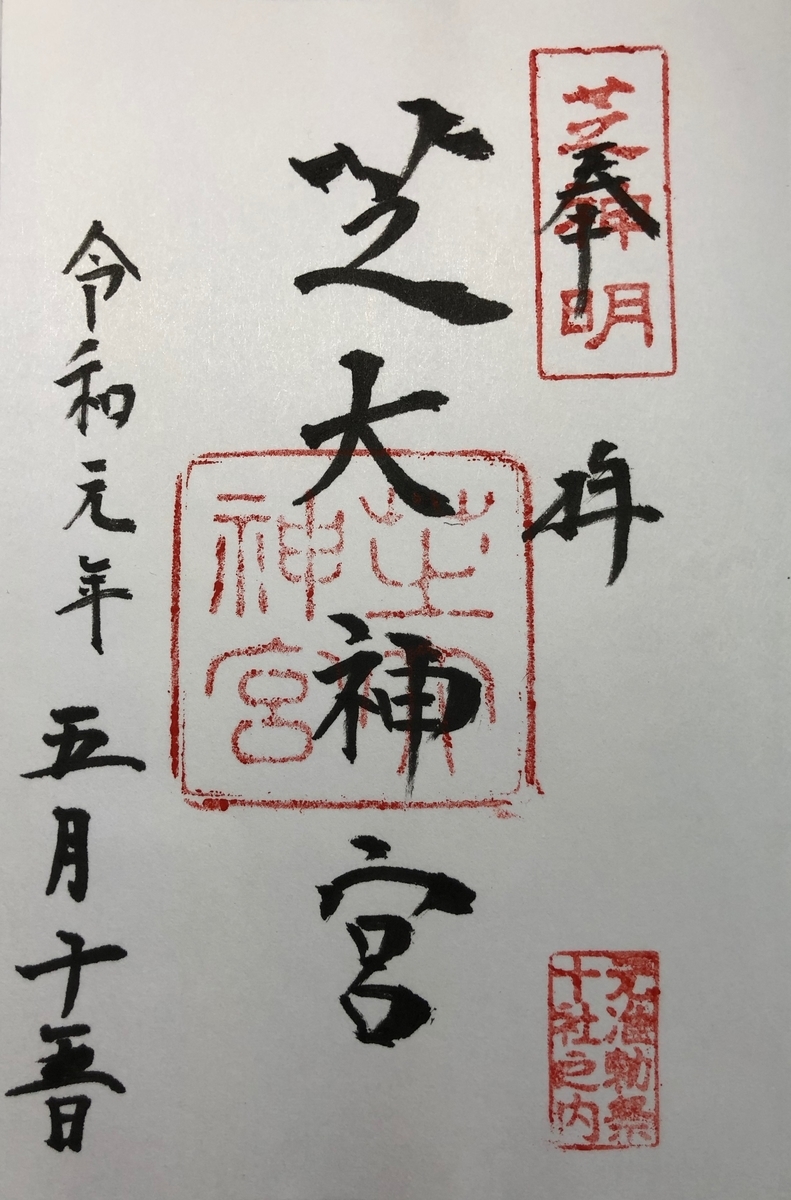 奉拝
芝神明
芝大神宮
芝大神宮
元准勅祭
十社之内
令和元年五月十五日